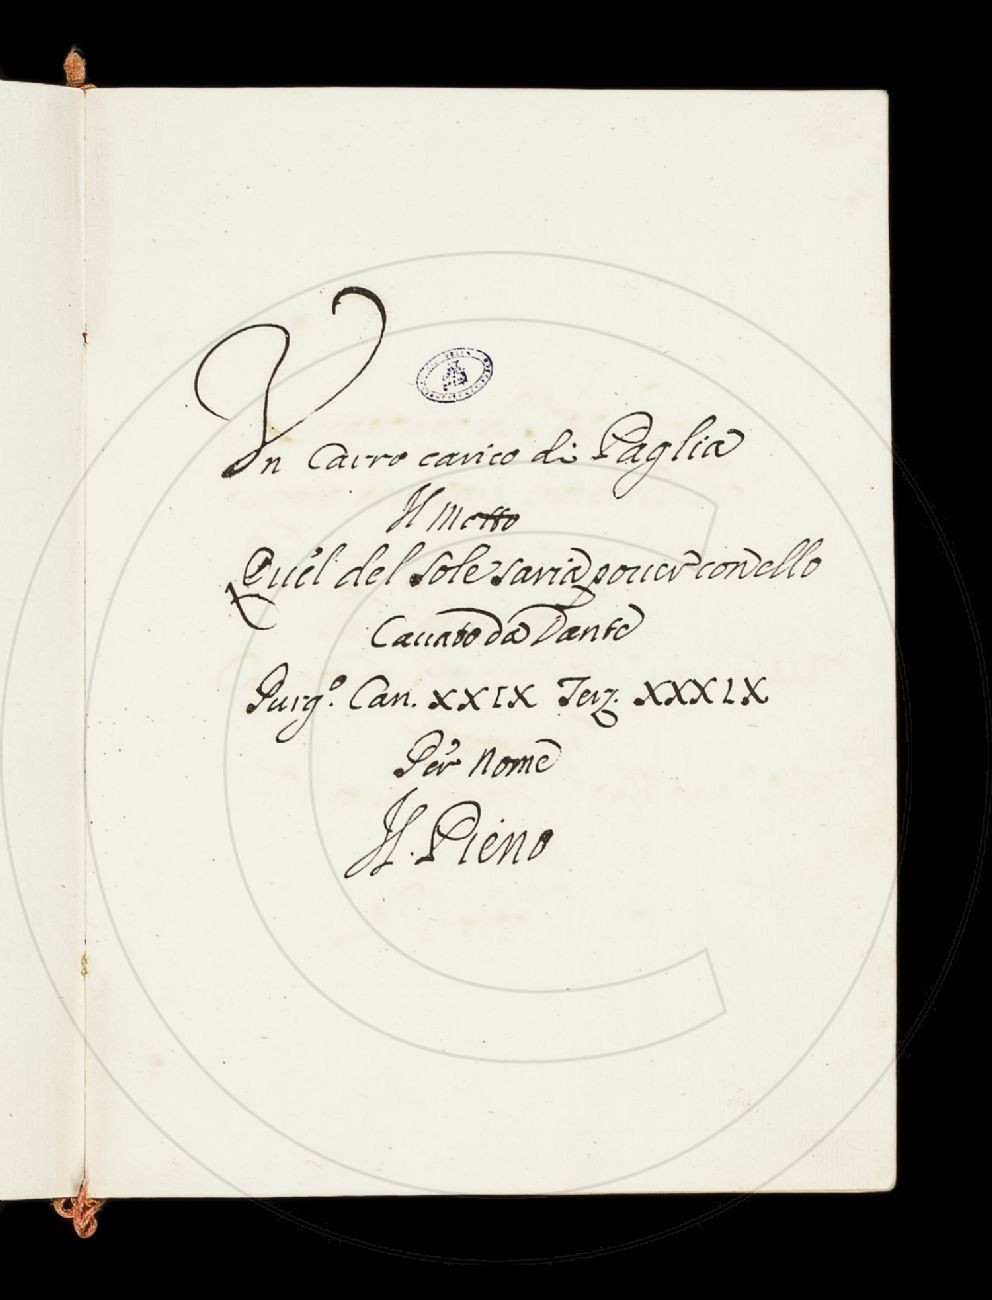 Un Carro carico di Paglia
Il Motto
Quel del Sole saria pouer con ello
Cauato da Dante
Purg.º Can. XXIX Terz. XXXIX
Per Nome
Il Pieno